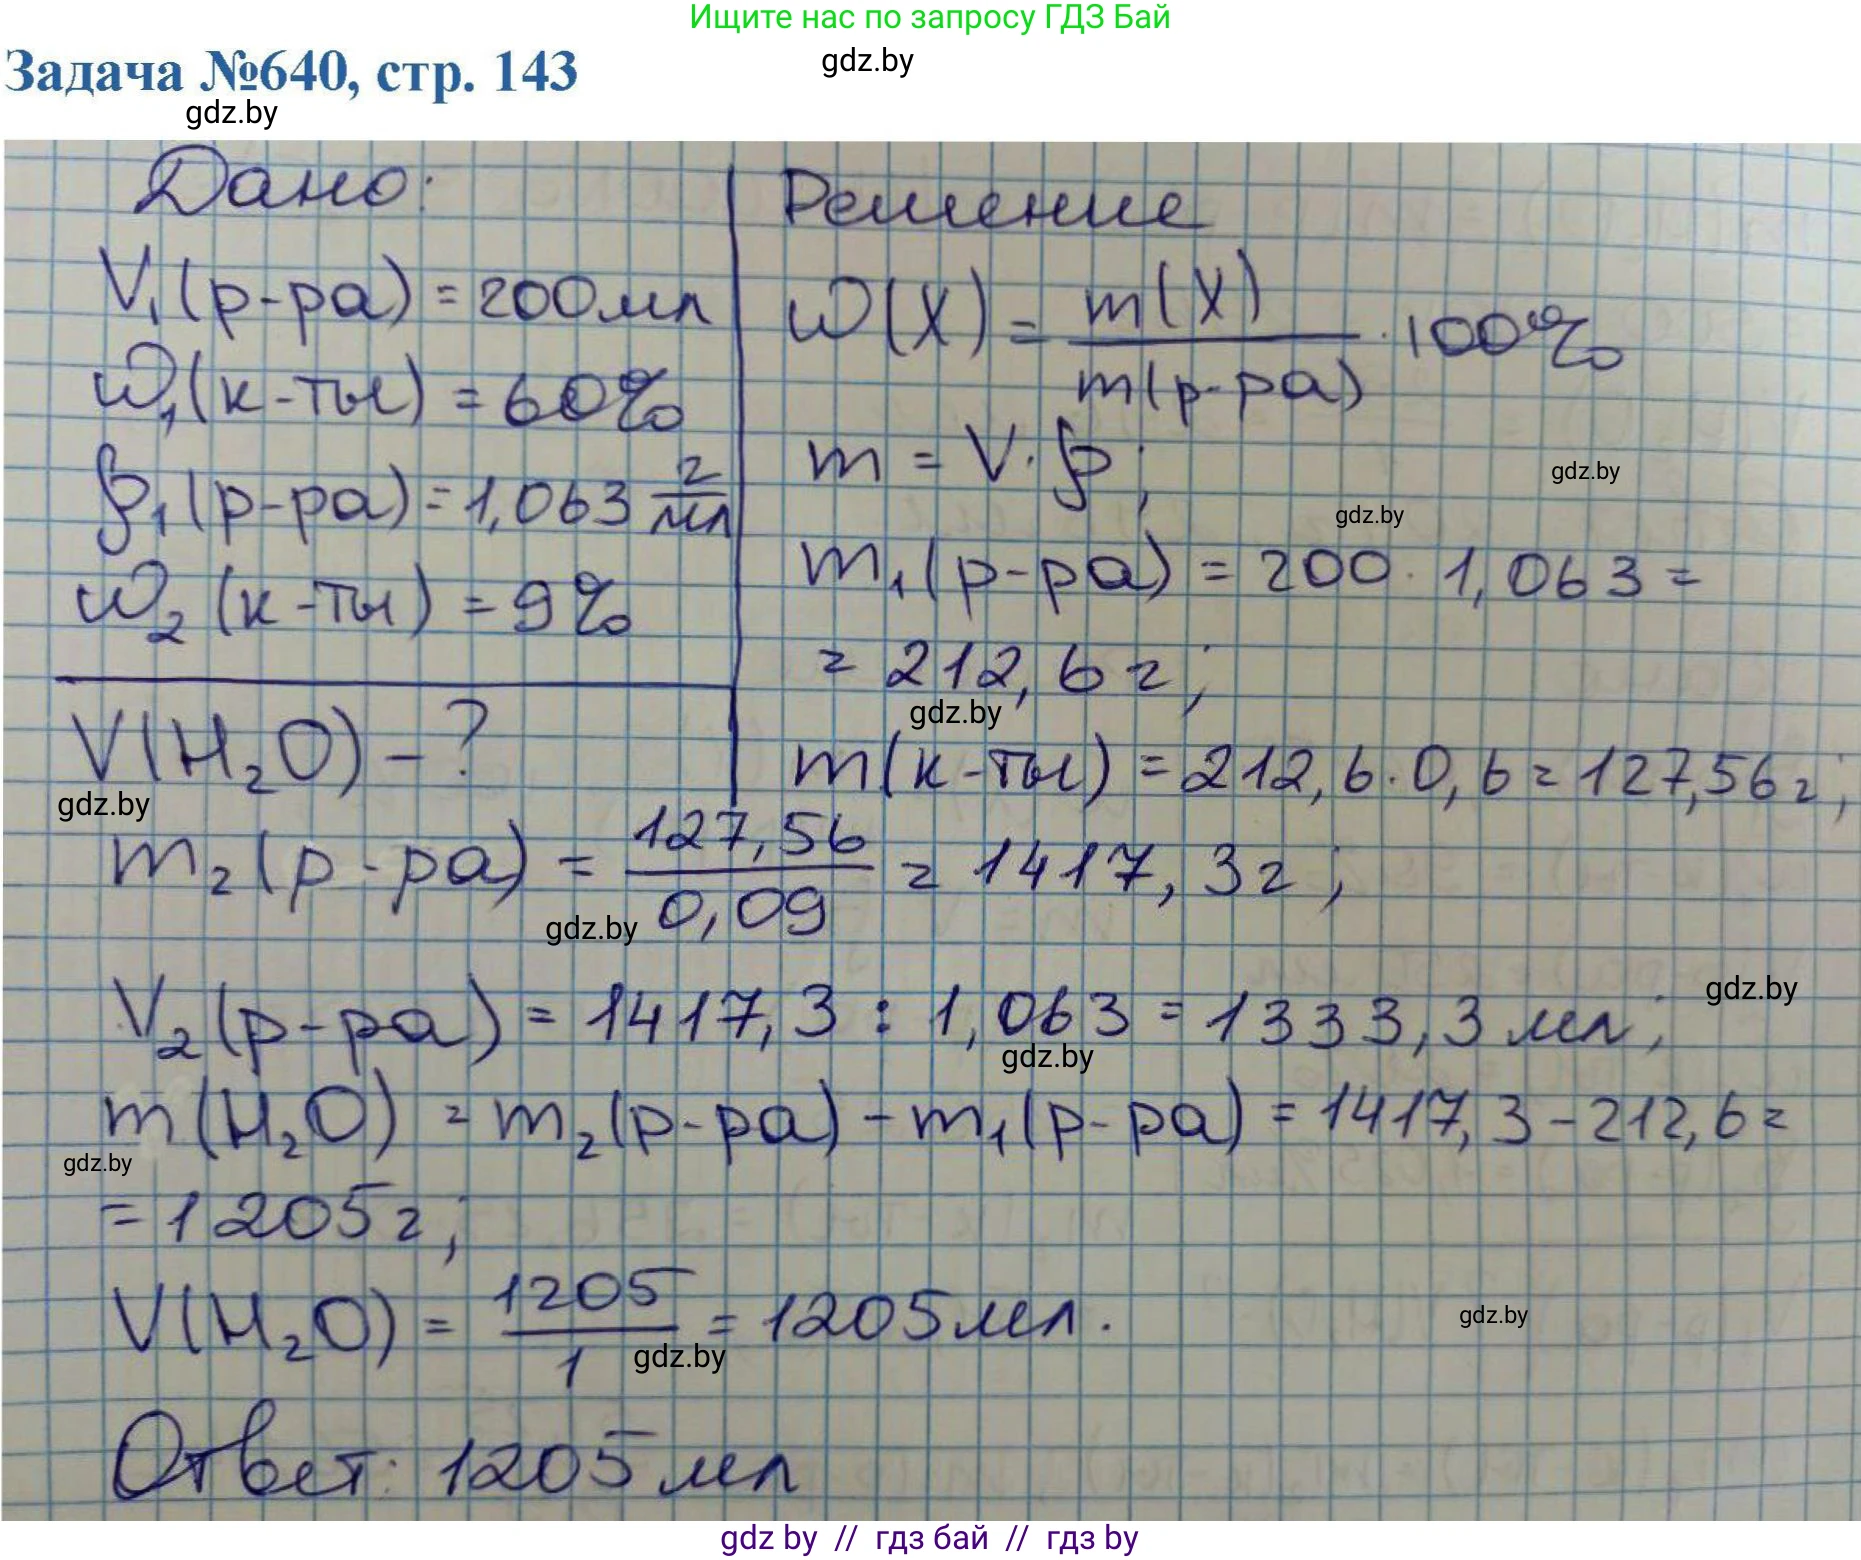 Ищите нас по запросу ГДЗ Бай
gdz.by
Задача №640, стр. 143
gdz.by
Дано:
V₁(р-ра) = 200мл
ω₁(к-ты) = 60%
ρ₁(р-ра) = 1,063 г/мл
ω₂(к-ты) = 9%
V(H₂O) - ?
gdz.by
Решение
ω(X) = m(X)/m(р-ра) · 100%
m = V · ρ;
gdz.by
gdz.by
m₁(р-ра) = 200 · 1,063 =
= 212,6 г;
gdz.by
m(к-ты) = 212,6 · 0,6 = 127,56 г;
m₂(р-ра) = 127,56/0,09 = 1417,3 г;
gdz.by
gdz.by
V₂(р-ра) = 1417,3 : 1,063 = 1333,3 мл;
gdz.by
m(H₂O) = m₂(р-ра) - m₁(р-ра) = 1417,3 - 212,6 =
gdz.by
= 1205 г;
V(H₂O) = 1205/1 = 1205 мл.
gdz.by
gdz.by
Ответ: 1205 мл
gdz by // гдз бай // гдз by